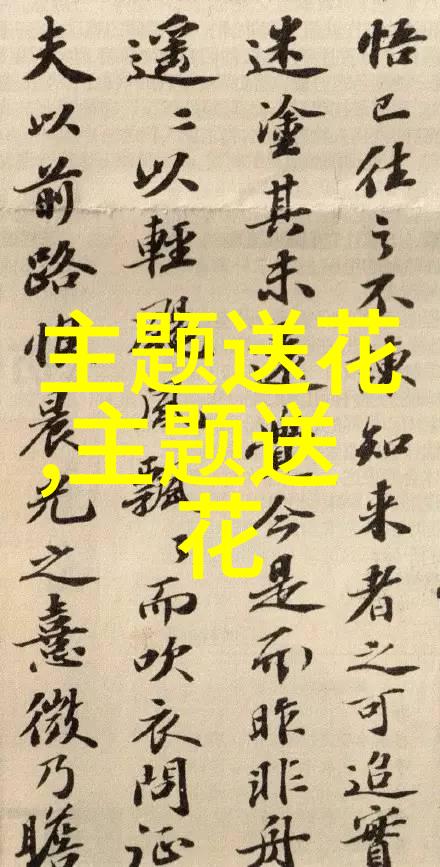 悟已往之不諫知来者之可追實
迷塗其未遠覺今是而昨非舟
遥々以輕颺風飄々而吹衣問征
夫以前路恨晨光之熹微乃瞻
主题送花
,主题送
花